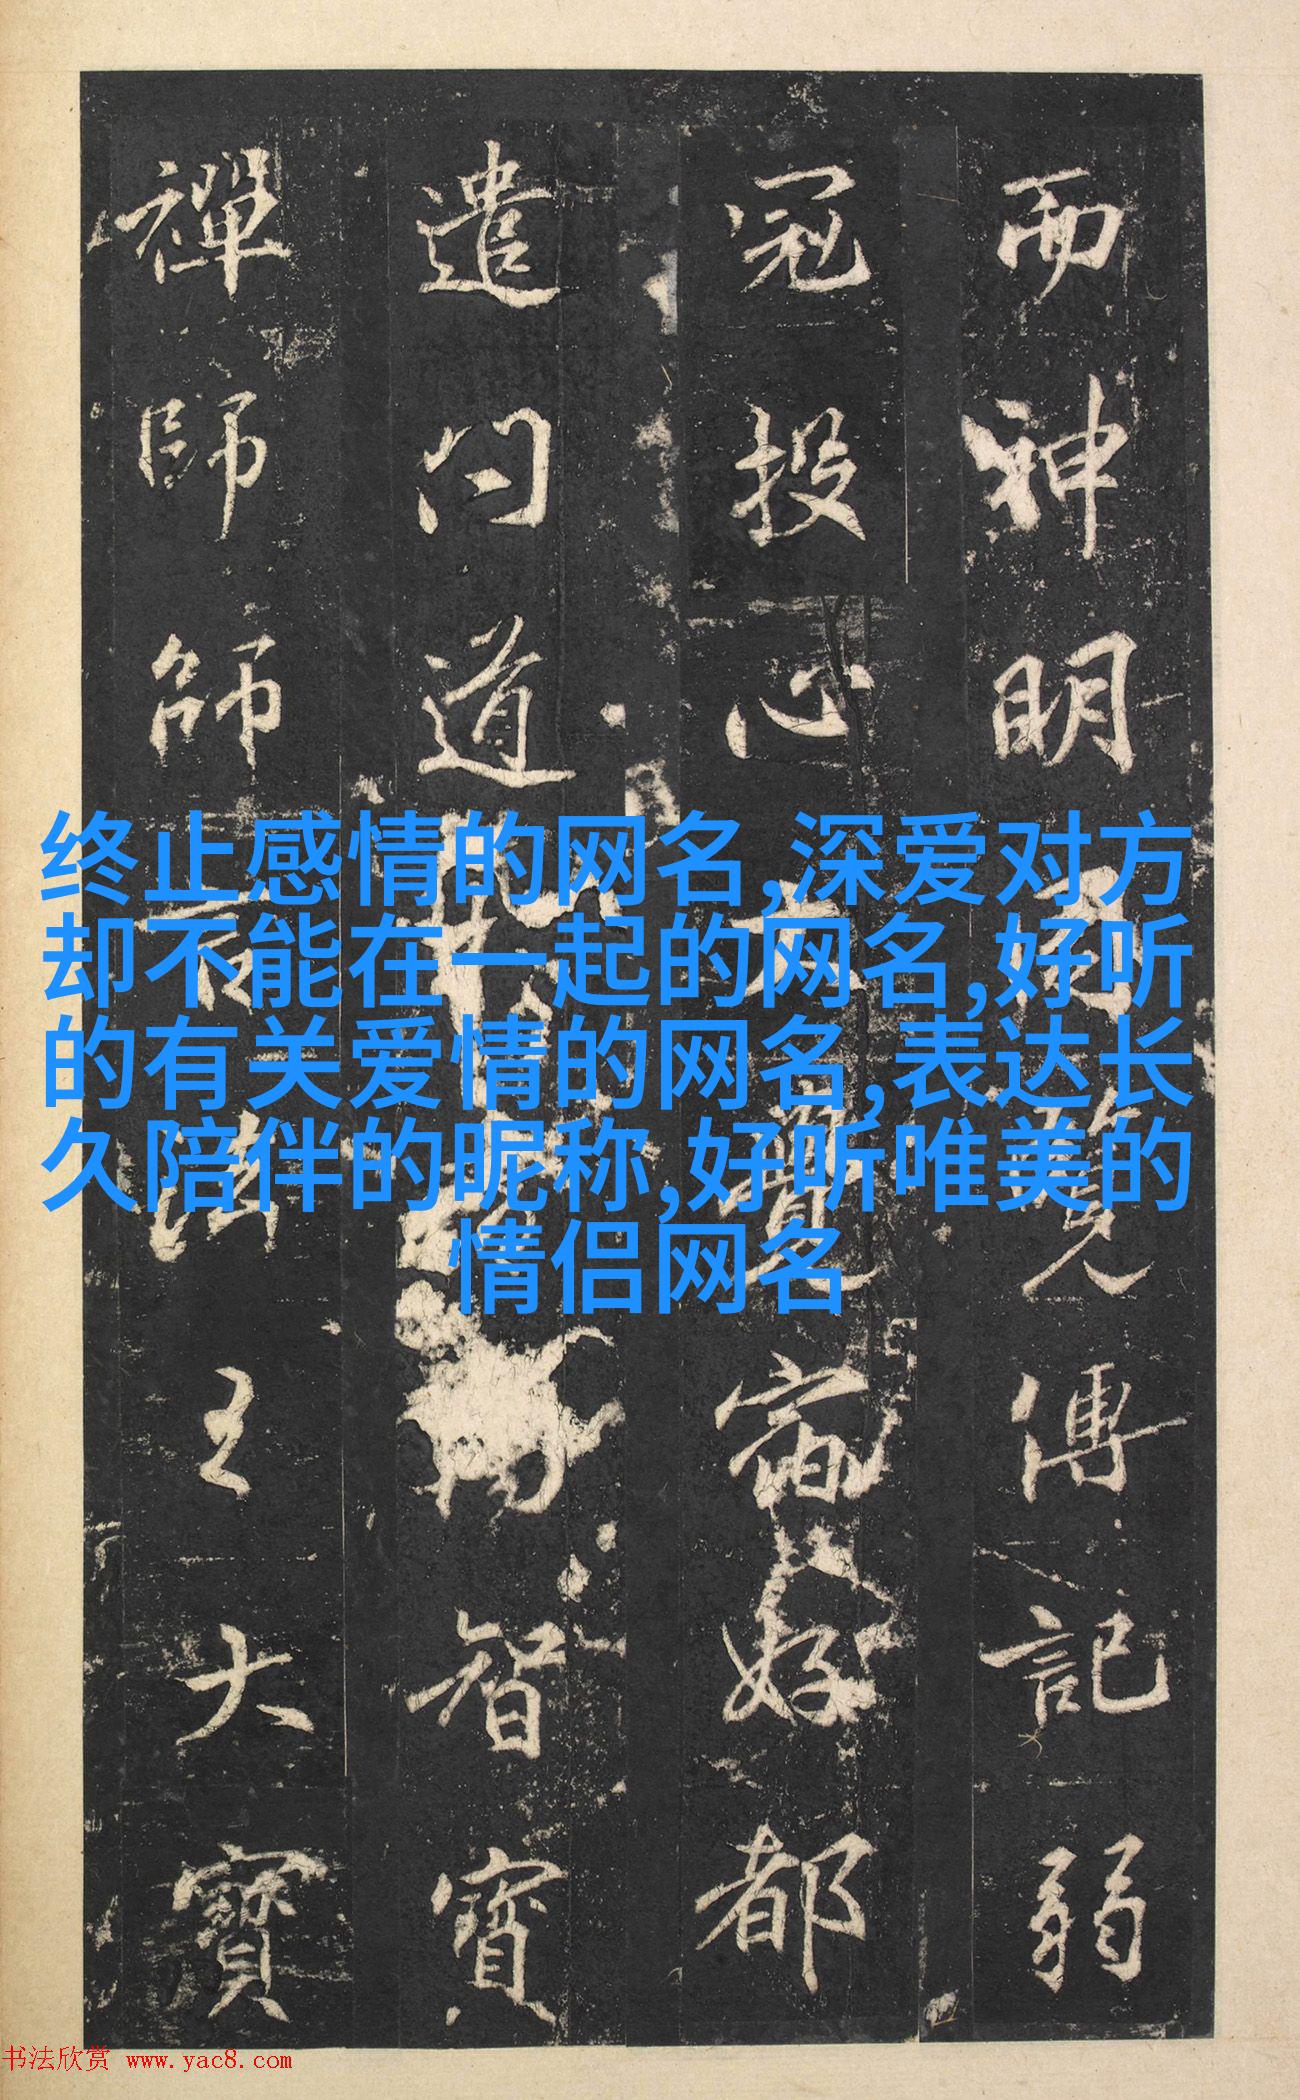 而神明覽傳記弱
冠投心覺宿好都
遣問道智寶
禪師師法王大寶
终止感情的网名,深爱对方
却不能在一起的网名,好听
的有关爱情的网名,表达长
久陪伴的昵称,好听唯美的
情侣网名
书法欣赏 www.yac8.com